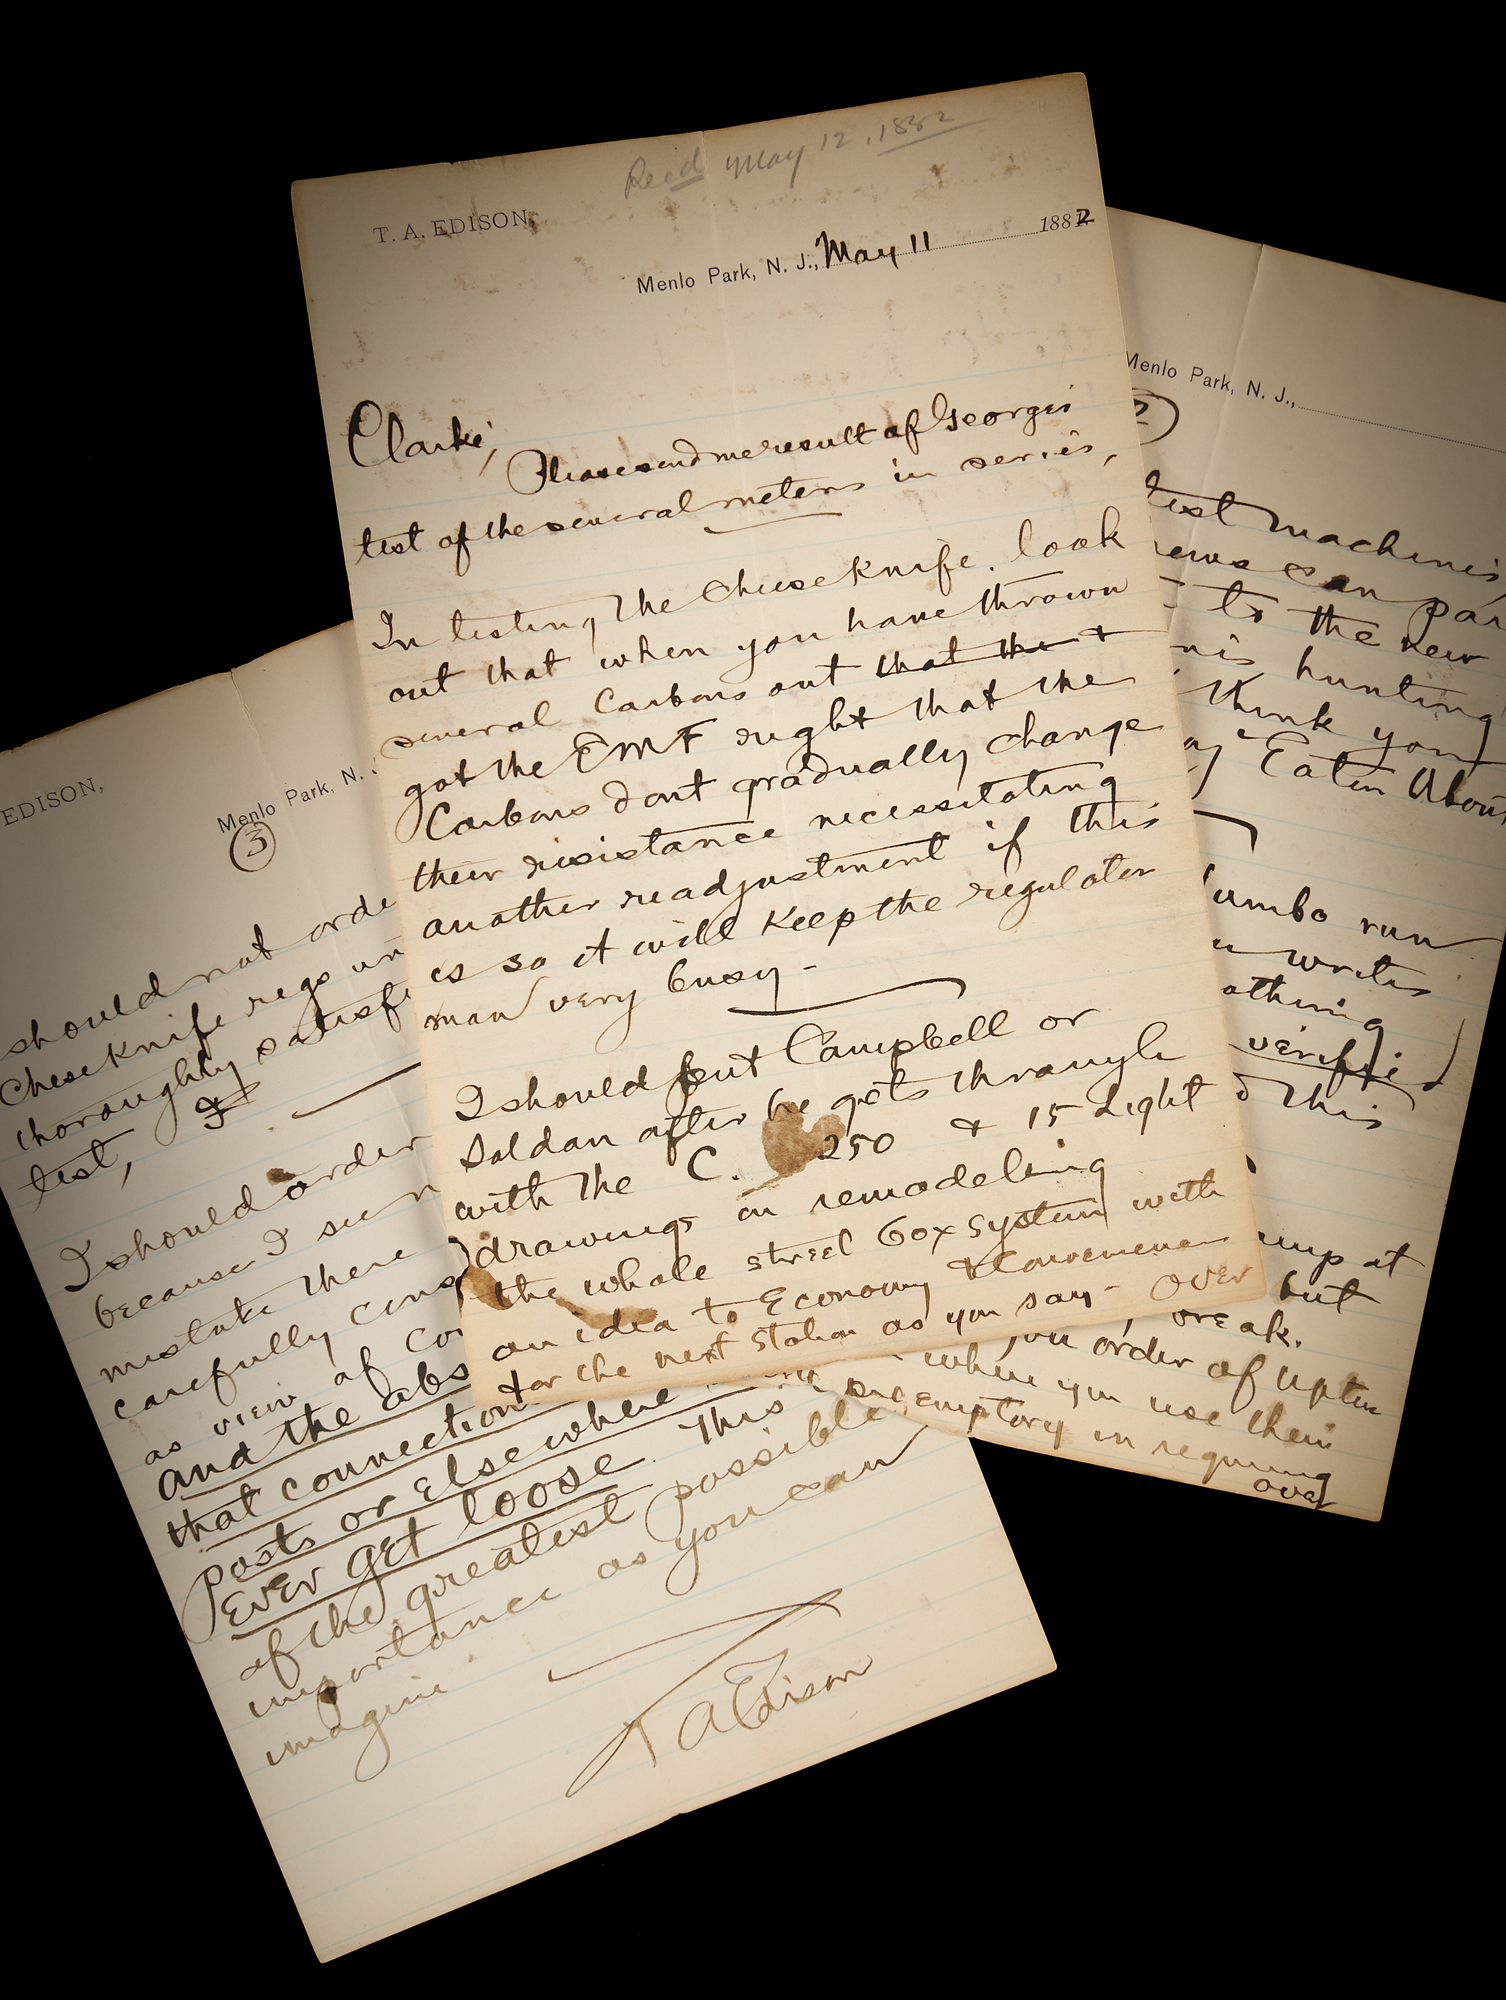 Recd May 12, 1882
T. A. EDISON,
Menlo Park, N. J., May 11 1882
Clarke,
Please send me result of Georges
test of the several meters in series,
In testing the Cheese Knife. look
out that when you have thrown
several Carbons out that the &
got the EMF right that the
Carbons dont gradually change
their resistance necessitating
another readjustment if this
is so it will keep the regulator
man very busy -
I should put Campbell or
Soldan after he gets through
with the C. 250 & 15 Light
drawings on remodeling
the whole street box system with
an idea to Economy & Convenience
for the next station as you say - over
Menlo Park, N. J.,
2
test machines
can
to the new
hunting
think you
Eaton About
umbo run
writes
othing
verified
this
ump at
but
break.
you order of Upton
when you use them
peremptory in requiring
over
EDISON,
Menlo Park, N.
3
should not orde
Cheese Knife regs un
thoroughly satisf
test, I
I should order
because I
mistake there
carefully
as view of co
and the abs
that connection
posts or elsewhere
ever get loose. This
of the greatest possible
importance as you can
imagine
T A Edison